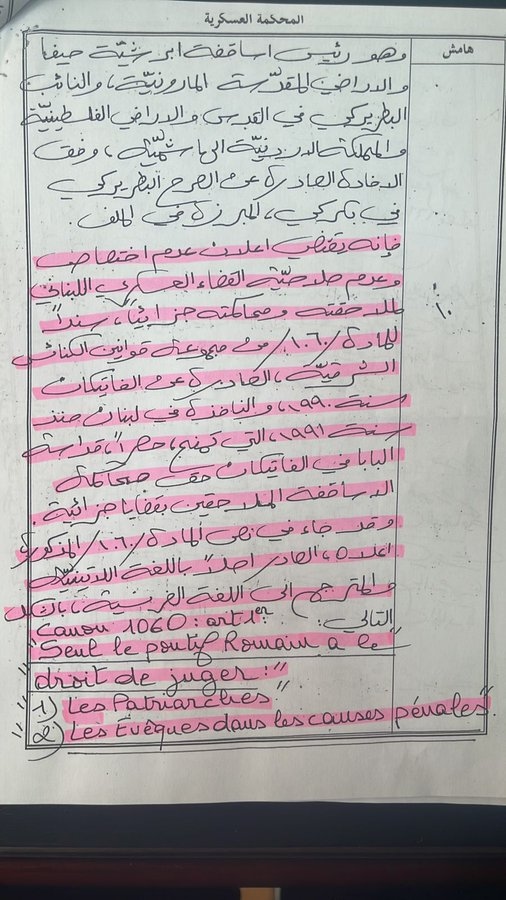 المحكمة العسكرية
هامش
وهو رئيس اساقفة ابرشيّة حيفا
والاراضي المقدّسة المارونيّة، والنائب
البطريركي في القدس والاراضي الفلسطينيّة
والمملكة الاردنيّة الهاشميّة، وفق
الافادة الصادرة عن الصرح البطريركي
في بكركي، المبرزة في الملف.
فإنه يقتضي اعلان عدم اختصاص
وعدم صلاحيّة القضاء العسكري اللبناني
لملاحقته ومحاكمته جزائياً، سنداً
للمادة /١٠٦٠/ من مجموعة قوانين الكنائس
الشرقيّة، الصادرة عن الفاتيكان
سنة ١٩٩٠، والنافذة في لبنان منذ
سنة ١٩٩١، التي تمنح، حصراً، قداسة
البابا في الفاتيكان حق محاكمة
الاساقفة الملاحقين بقضايا جزائية.
وقد جاء في نص المادة /١٠٦٠/ المذكورة
اعلاه، الصادر اصلاً باللغة اللاتينيّة
والمترجم الى اللغة الفرنسية، بالشكل
التالي: Canon 1060: art 1er
"Seul le pontif Romain a le"
"droit de juger:"
"1) Les Patriarches"
"2) Les Evêques dans les causes pénales"
١٠